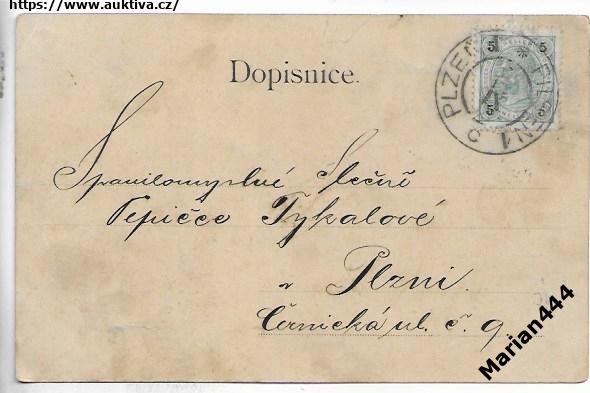 https://www.auktiva.cz/
Dopisnice.
PLZEŇ * PILSEN 1
5 5
5 5
Spanilomyslné Slečně
Pepičce Týkalové
v Plzni.
Černická ul. č. 9.
Marian444